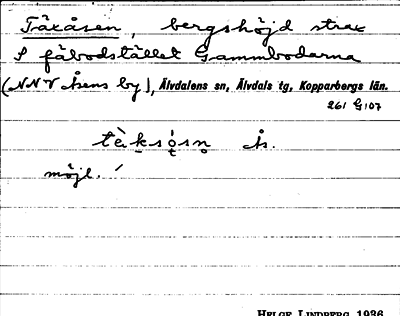 Täxåsen, bergshöjd strax
S fäbodstället Gammbodarna
(NNV Åsens by), Älvdalens sn, Älvdals tg, Kopparbergs län.
261 G107
tὲksó̜sn̥ Ås.
möjl. /
HELGE LINDBERG 1936